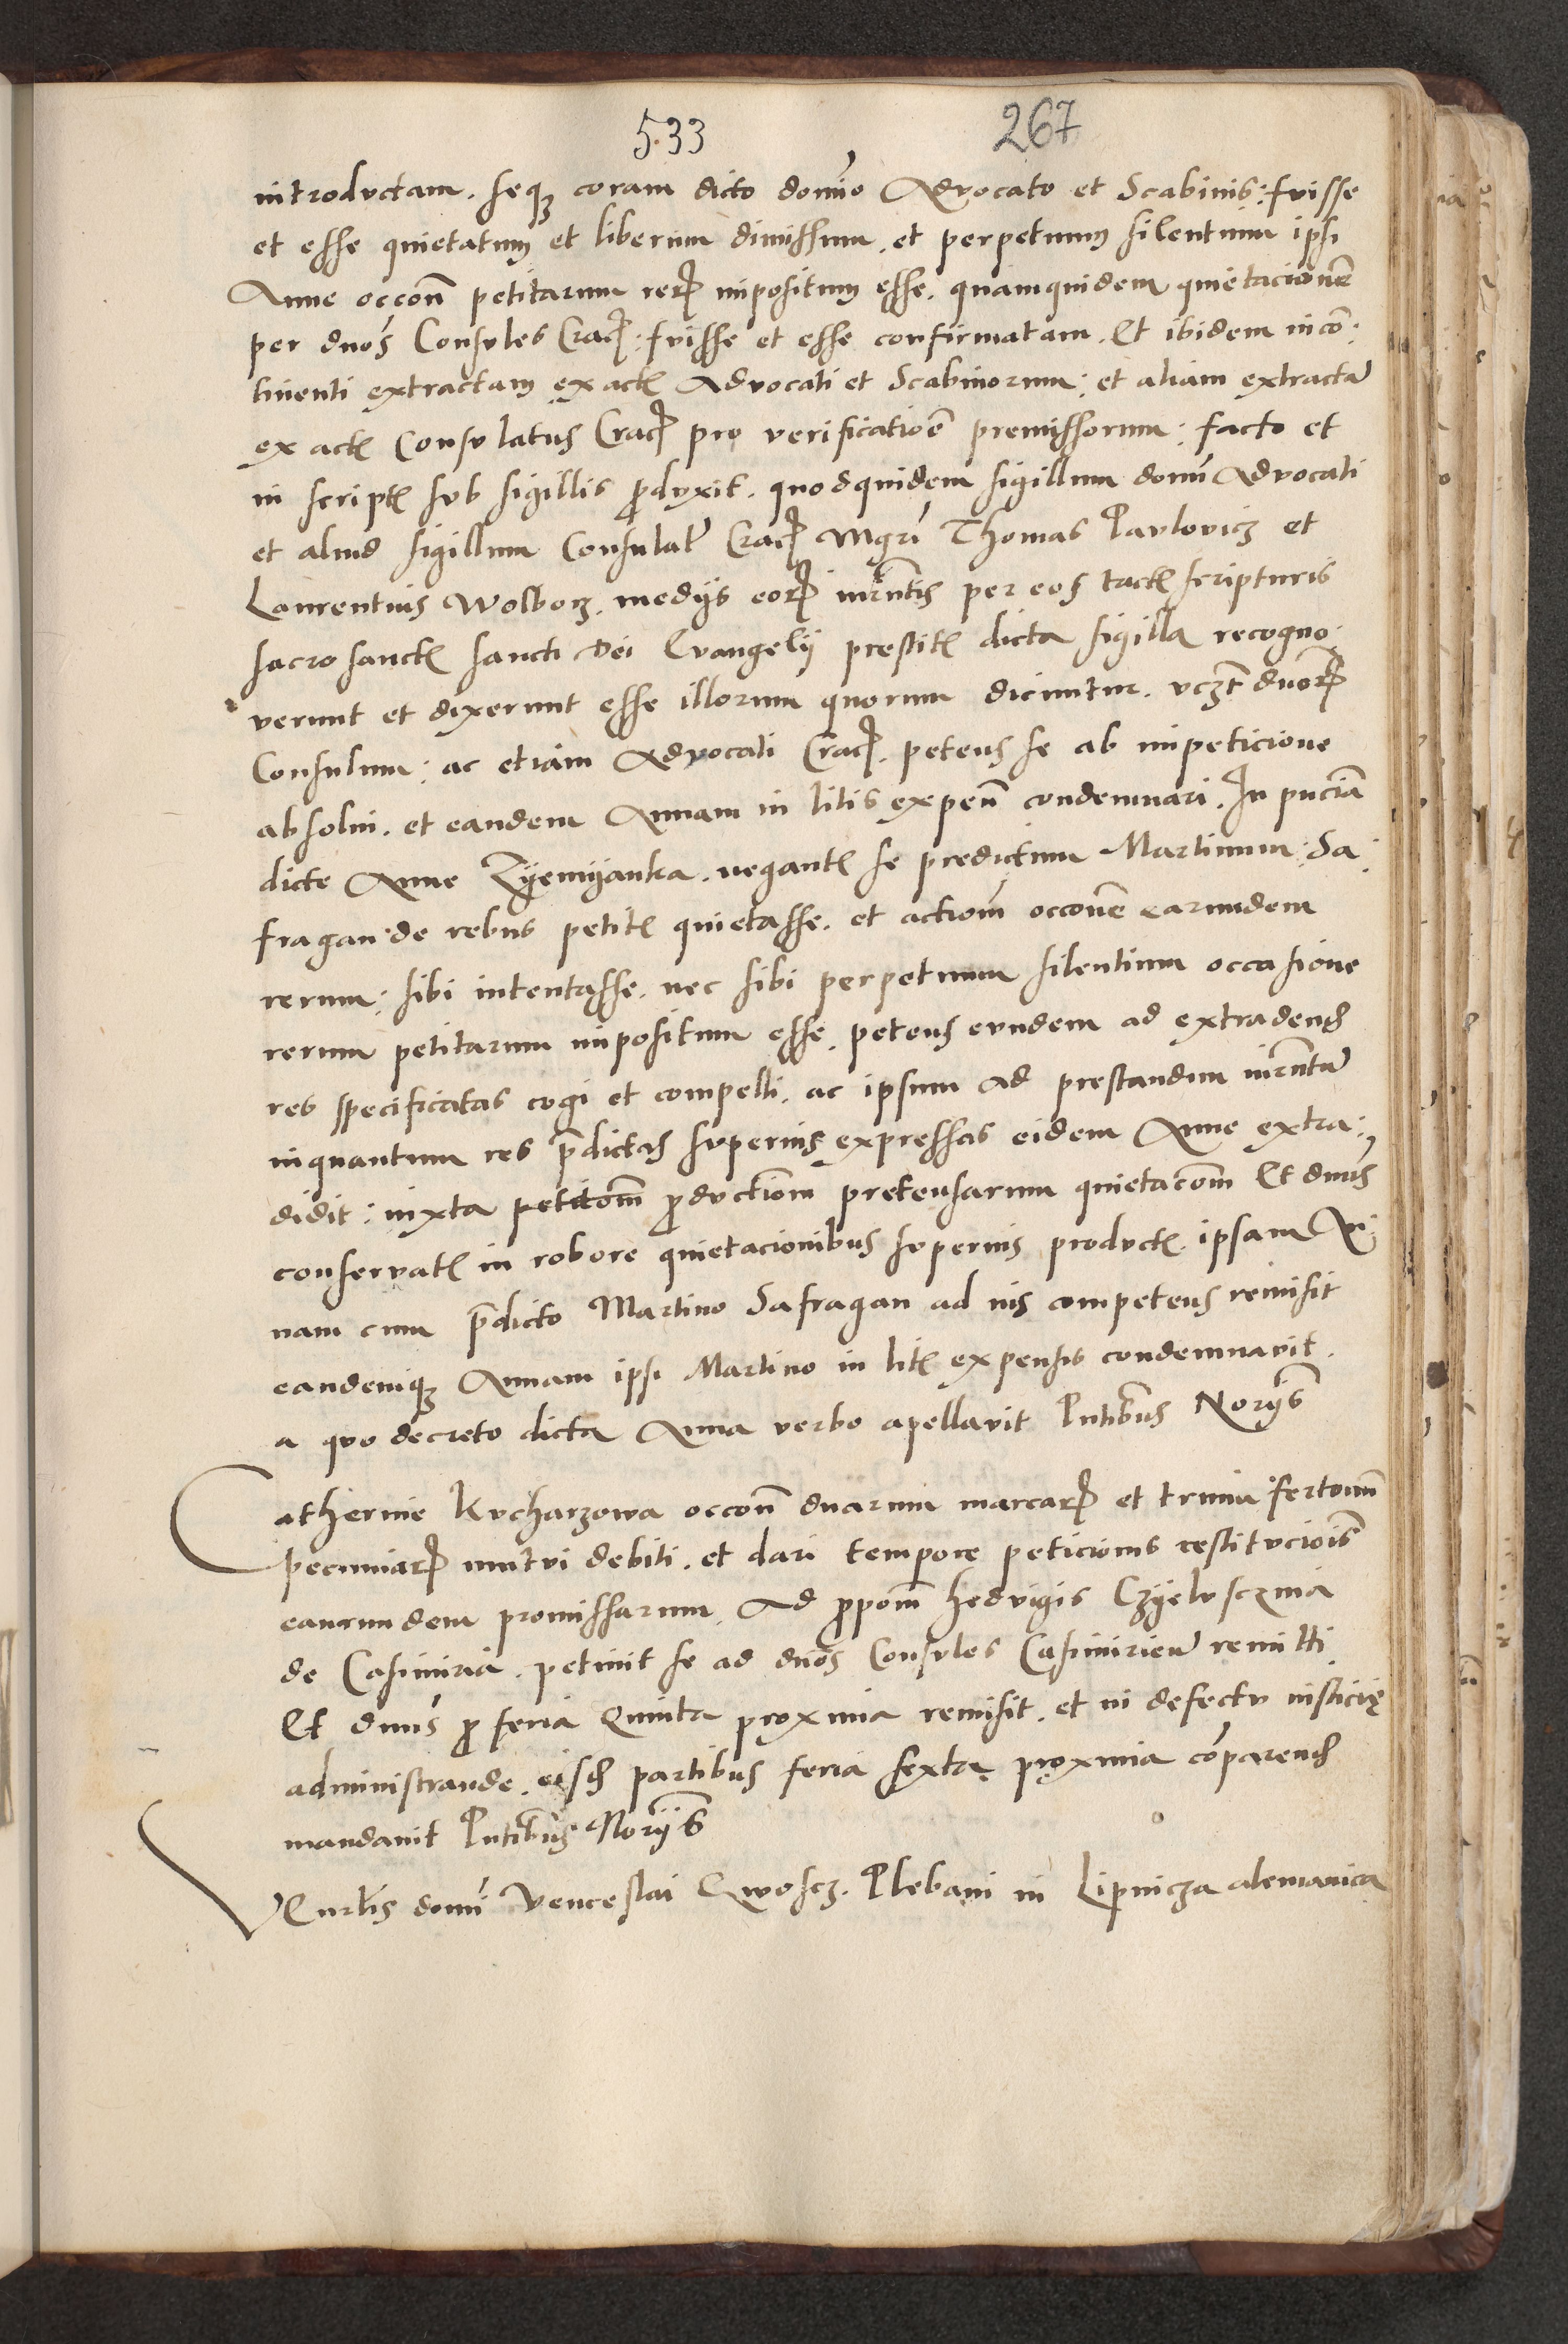 533 267
introductam. seqꝫ coram dicto domĩo Advocato et Scabinis: fuisse
et esse quietatum et liberum dimissum. et perpetuum silentium ipsi
Anne occoñ petitarum reꝝ impositum esse. quamquidem quietacionẽ
per dnõs Consules Crac̃: fuisse et esse confirmatam. Et ibidem inco͂:
tinenti extractam ex actꝭ Advocati et Scabinorum: et aliam extractã
ex actꝭ Consulatus Crac̃ pro verificatiõe premissorum: facto et
in scriptꝭ sub sigillis ꝓduxit. quodquidem sigillum domĩ Advocati
et aliud sigillum Consulat᷒ Crac̃ Mgrĩ Thomas Pavlovicz et
Laurentius Wolborz. medijs eoꝝ iurñtis per eos tactꝭ scripturis
sacrosanctꝭ sancti dei Evangelij prestitꝭ dicta sigilla recogno:
verunt et dixerunt esse illorum quorum dicuntur. vczt̃ dnoꝝ̃
Consulum: ac etiam Advocati Crac̃. petens se ab impeticione
absolui. et eandem Annam in litis expeñ condemnari. In pñcia͂
dicte Anne Zyemyanka. negantꝭ se predictum Martinum: Sa:
fragan de rebus petitꝭ quietasse. et actiom̃ occonẽ earundem
rerum: sibi intentasse. nec sibi perpetuum silentium occasione
rerum petitarum impositum esse. petens eundem ad extradend
res specificatas cogi et compelli. ac ipsum ad prestandum iurñtu͂
inquantum res p̃dictas superius expressas eidem Anne extra:
didit: iuxta petitom̃ ꝓductiom pretensarum quietacom̃ Et dnus̃
conservatꝭ in robore quietacionibus superius productꝭ ipsam An:
nam cum p̃dicto Martino Safragan ad ius competens remisit
eandemqꝫ Annam ipsi Martino in litꝭ expensis condemnavit.
a quo decreto dicta Anna verbo apellavit Pntibus̃ Norijs̃
Catherine Kucharzowa occoñ duarum marcaꝝ et trium fertonum̃
pecuniaꝝ mutui debiti. et dari tempore peticionis restituciois̃
earumdem promissarum. Ad ꝓpom̃ Hedvigis Czyeluscznia
de Casimiria. petiuit se ad dnõs Consules Casimirieñ remitti.
Et dnus̃ ꝓ feria Quinta proxima remisit. et in defectu iusticię
administrande. eisd partibus feria sexta proxima co͂parend
mandauit Pntibus̃ Norijs̃
Venceslai Plebani in Lipnicza alemanica